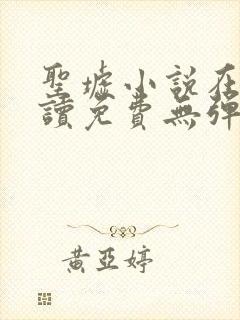 聖墟小說在
讀免費無彈
黃亞婷